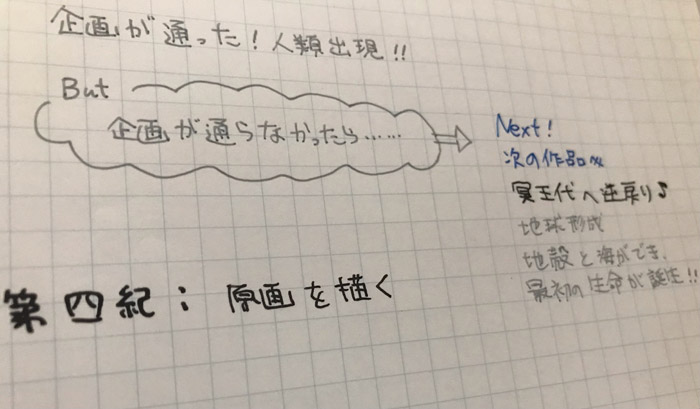 企画が通った！人類出現!!
But
企画が通らなかったら……
Next!
次の作品へ
冥王代へ逆戻り♪
地球形成
地殻と海ができ、
最初の生命が誕生!!
第四紀：原画を描く